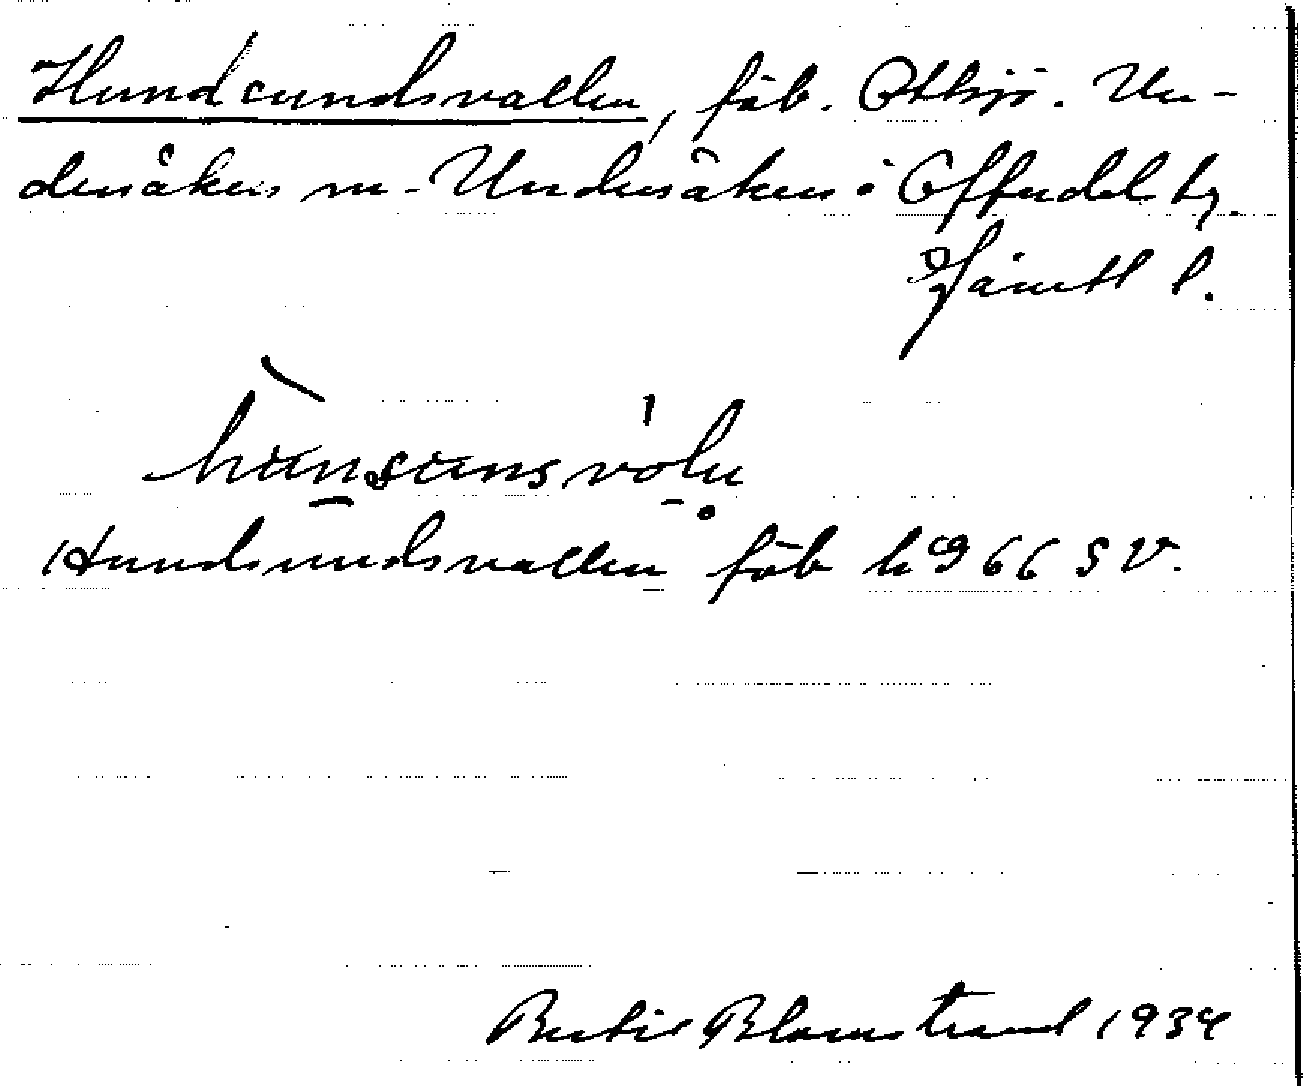 Hundsundsvallen, fäb. Ottsjö. Un-
densåkers sn - Undersåker o Offerdal tg.
Jämtl l.
hunsunsvoln
Hundsundsvallen fäb h 9 66 SV.
Bertil Blomstrand 1934